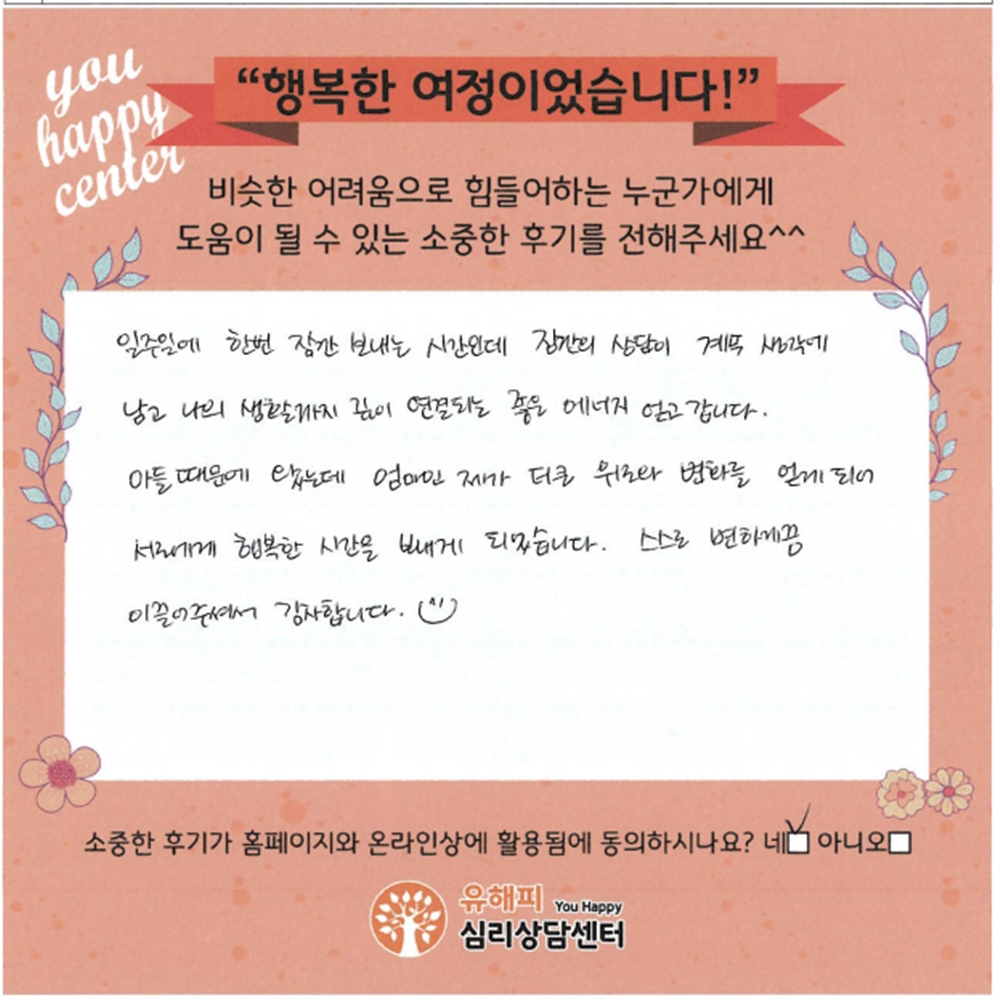 you
happy
center
“행복한 여정이었습니다!”
비슷한 어려움으로 힘들어하는 누군가에게
도움이 될 수 있는 소중한 후기를 전해주세요^^
일주일에 한번 잠깐 보내는 시간인데 잠깐의 상담이 계속 생각에
남고 나의 생활까지 깊이 연결되는 좋은 에너지 얻고 갑니다.
아들 때문에 왔는데 엄마인 제가 더 큰 위로와 변화를 얻게 되어
서로에게 행복한 시간을 보내게 되었습니다. 스스로 변하게끔
이끌어주셔서 감사합니다.
소중한 후기가 홈페이지와 온라인상에 활용됨에 동의하시나요? 네 아니오
유해피 You Happy
심리상담센터